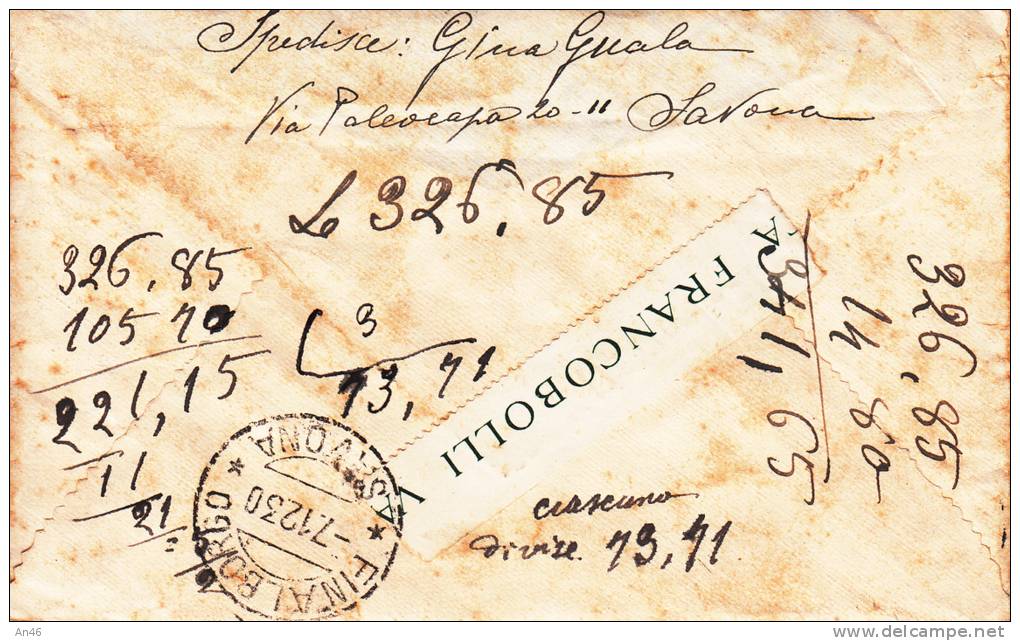 Spedisce: Gina Guala
Via Paleocapa 20-11 Savona
L 326,85
326,85
105 70
221,15
11
21
3
73,71
FRANCOBOLLI VA
326,85
14 80
341,65
ciascuno
divise 73,71
FINALBORGO * SAVONA *
-7.12.30
An46
delcampe.net